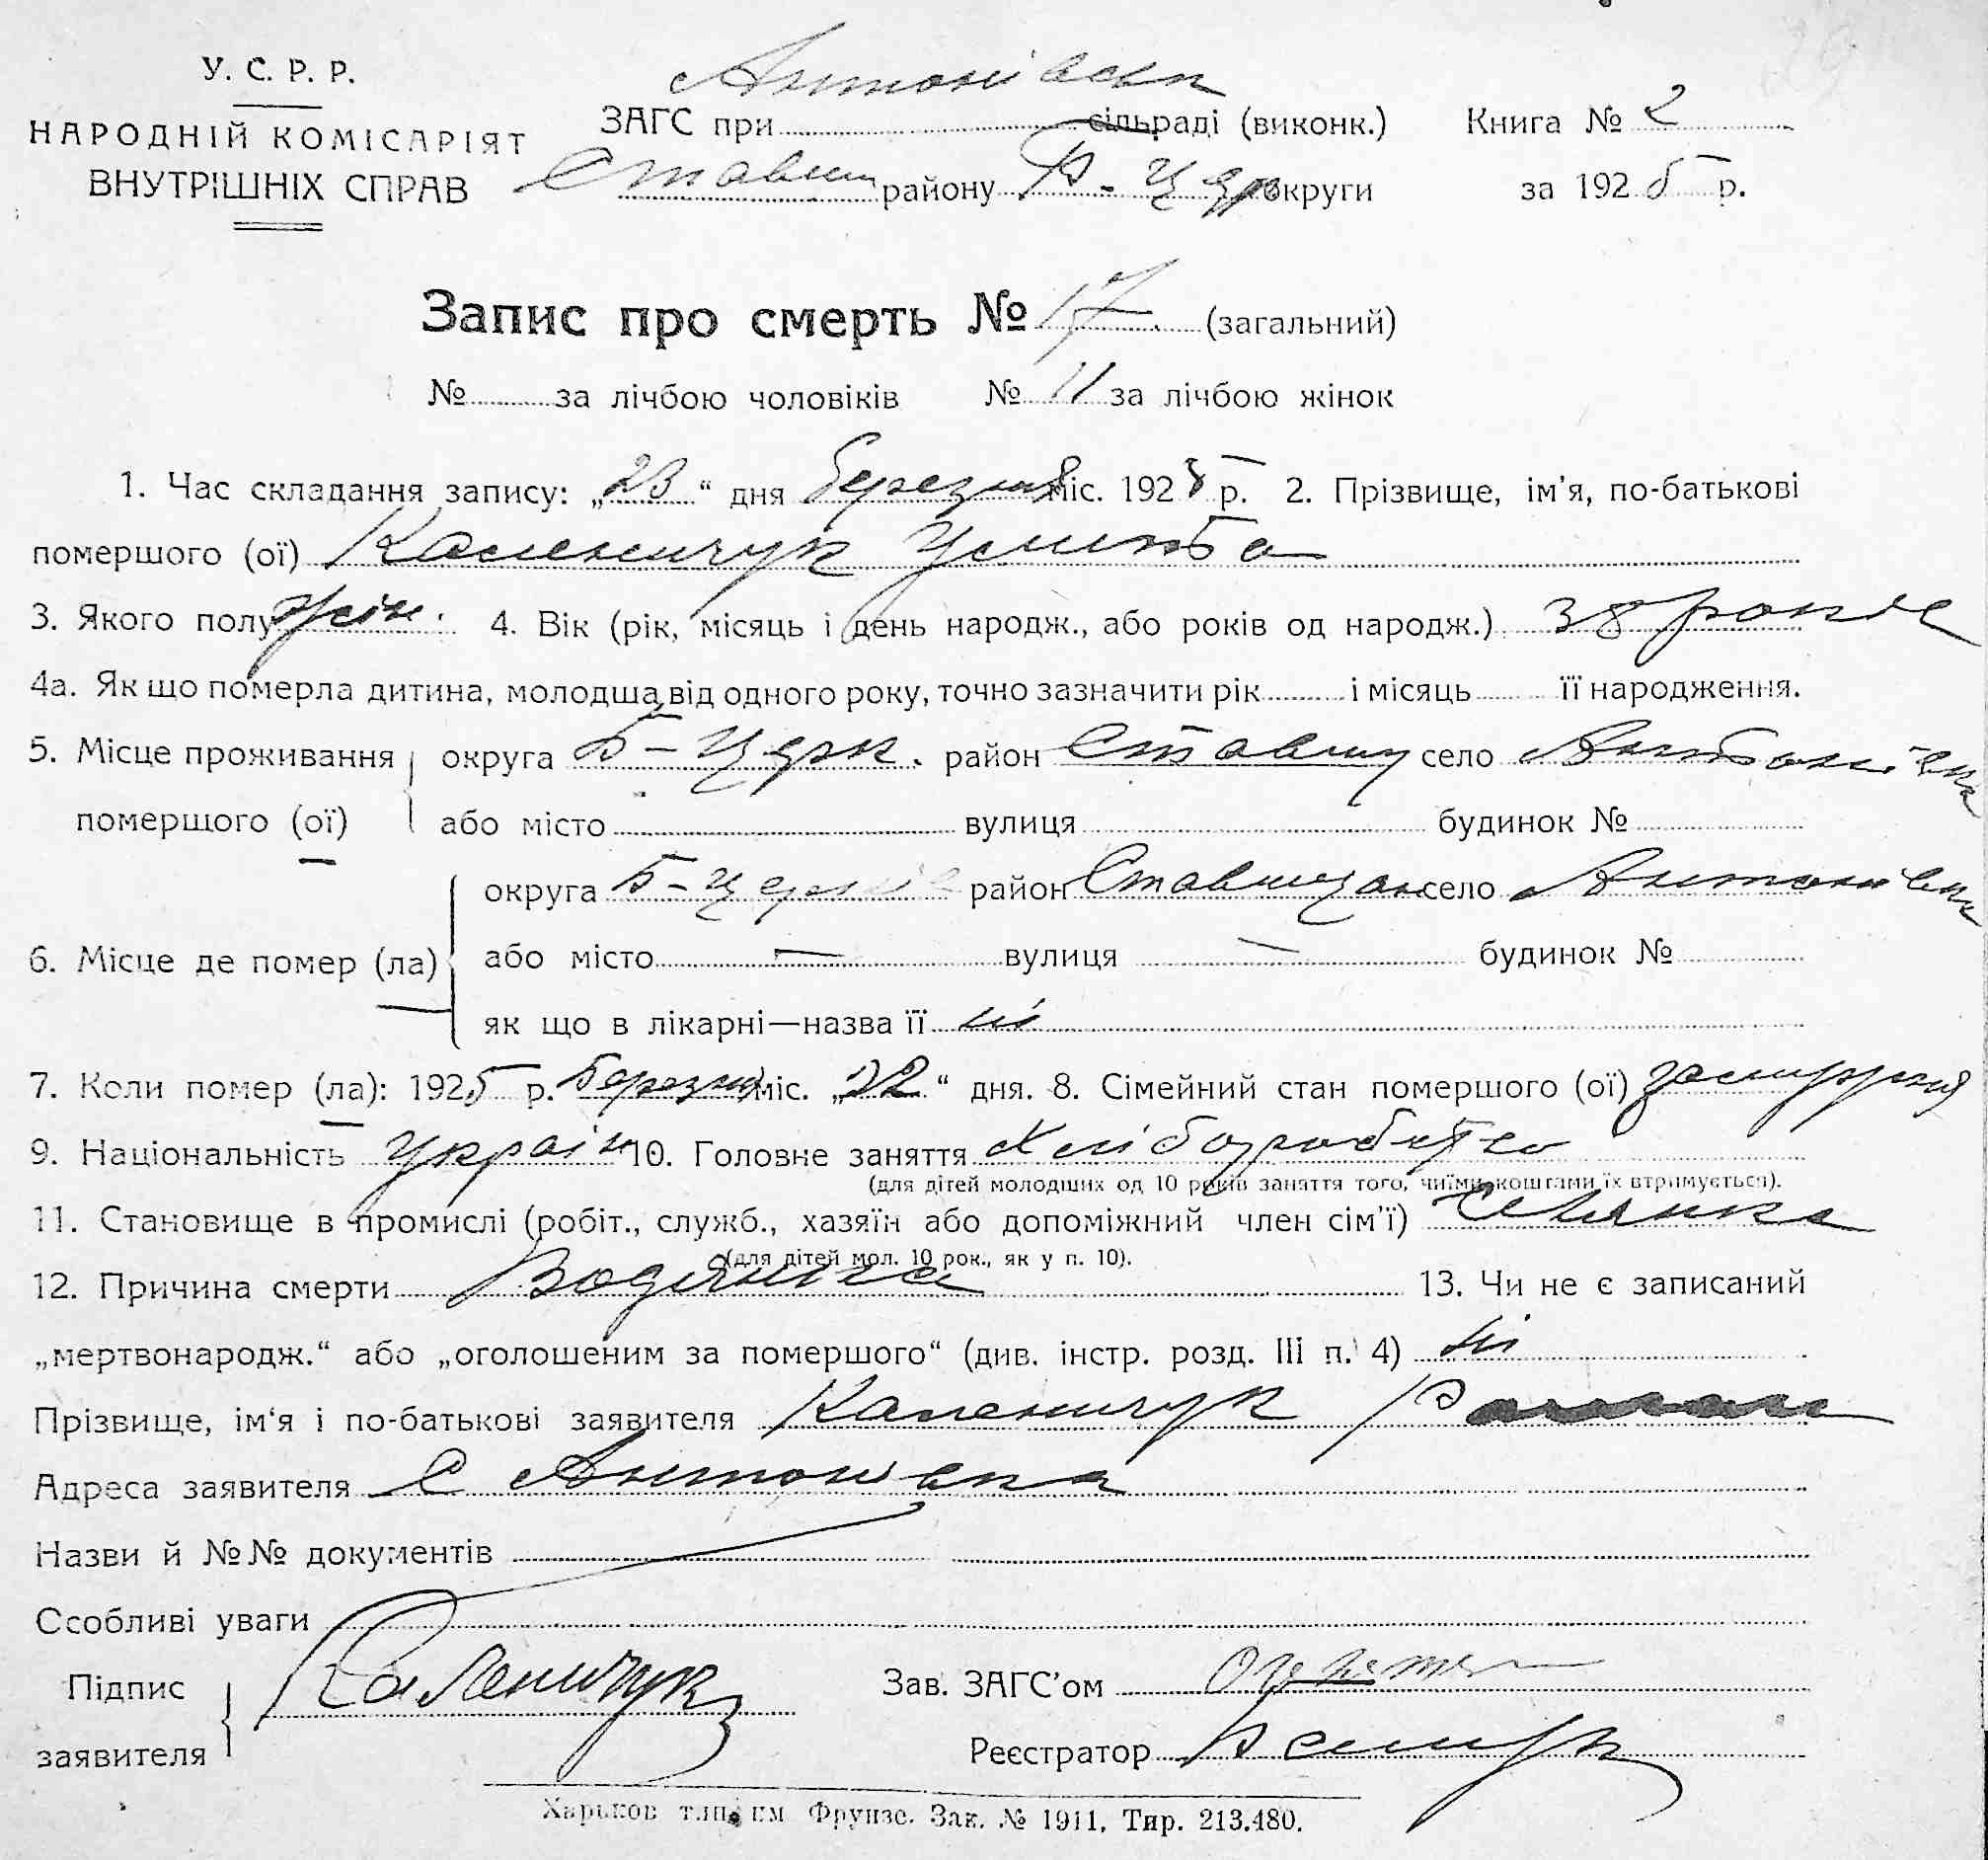 У. С. Р. Р.
НАРОДНІЙ КОМІСАРІЯТ
ВНУТРІШНІХ СПРАВ
Антонівськ
ЗАГС при сільраді (виконк.) Книга № 2
Ставищ району Б-Церк округи за 1925 р.
Запис про смерть № 17 (загальний)
№ за лічбою чоловіків № 11 за лічбою жінок
1. Час складання запису: „23“ дня березня міс. 1925 р. 2. Прізвище, ім'я, по-батькові
помершого (ої) Каленичук
3. Якого полу жін. 4. Вік (рік, місяць і день народж., або років од народж.) 38 років
4а. Як що померла дитина, молодша від одного року, точно зазначити рік і місяць її народження.
5. Місце проживання округа Б-Церк. район Ставищ село Антонівка
помершого (ої) або місто вулиця будинок №
6. Місце де помер (ла) округа Б-Церків район Ставищан село Антонівка
або місто — вулиця — будинок №
як що в лікарні—назва її ні
7. Коли помер (ла): 1925 р. Березня міс. „22“ дня. 8. Сімейний стан помершого (ої) замужня
9. Національність Україн 10. Головне заняття Хліборобство
(для дітей молодших од 10 років заняття того, чиїми коштами їх втримується).
11. Становище в промислі (робіт., служб., хазяїн або допоміжний член сім'ї) селянка
(для дітей мол. 10 рок., як у п. 10).
12. Причина смерти Водянка 13. Чи не є записаний
„мертвонародж.“ або „оголошеним за помершого“ (див. інстр. розд. III п. 4) ні
Прізвище, ім'я і по-батькові заявителя Каленичук Роман
Адреса заявителя С Антонівка
Назви й №№ документів
Особливі уваги
Підпис заявителя Каленичук Зав. ЗАГС'ом
Реєстратор
Харьков тип. им Фрунзе. Зак. № 1911, Тир. 213.480.